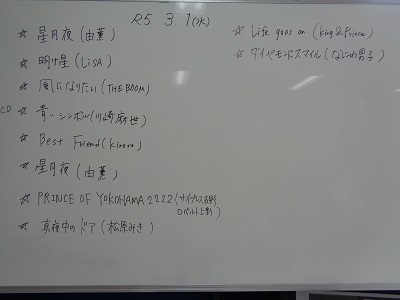 R5. 3. 1(水)
☆ 星月夜 (由薫)
☆ 明け星 (LiSA)
☆ 風になりたい (THE BOOM)
CD ☆ 青いシンボル(川崎麻世)
☆ Best Friend (Kiroro)
☆ 星月夜 (由薫)
☆ PRINCE OF YOKOHAMA 2222 (サイプレス上野
ロベルト吉野
☆ 真夜中のドア (松原みき)
☆ Life goes on (King & Prince)
☆ ダイヤモンドスマイル (なにわ男子)